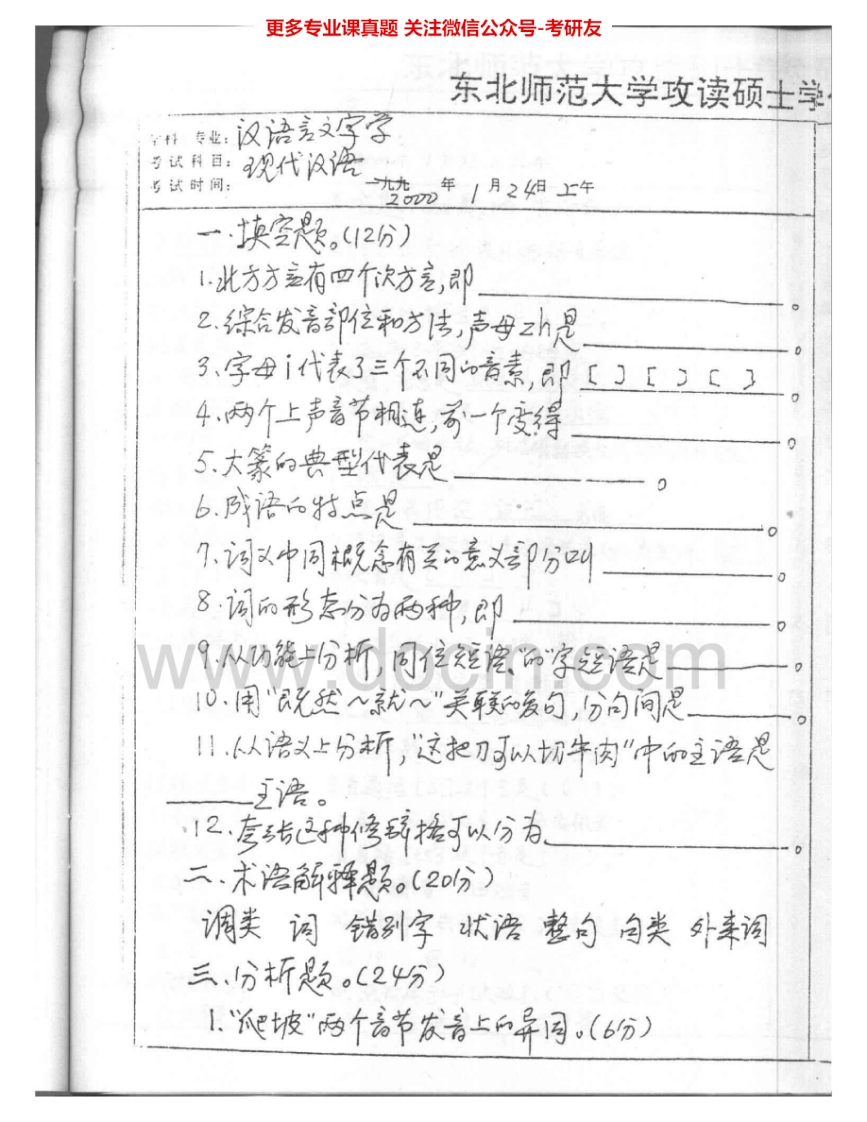 更多专业课真题 关注微信公众号-考研友
东北师范大学攻读硕士学
学科 专业: 汉语言文字学
考试科目: 现代汉语
考试时间: 一九九 2000 年 1 月 24日 上午
一.填空题。(12分)
1.北方方言有四个次方言,即____________。
2.综合发音部位和方法,声母zh是____________。
3.字母i代表了三个不同的音素,即[ ] [ ] [ ]。
4.两个上声音节相连,前一个变得____________。
5.大篆的典型代表是____________。
6.成语的特点是____________。
7.词义中同概念有关的意义部分叫____________。
8.词的形态分为两种,即____________。
9.从功能上分析,同位短语、"的"字短语是________。
10.用"既然~就~"关联的复句,分句间是________。
11.从语义上分析,"这把刀可以切牛肉"中的主语是
______主语。
12.夸张这种修辞格可以分为____________。
二.术语解释题。(20分)
调类 词 错别字 状语 整句 句类 外来词
三.分析题。(24分)
1."爬坡"两个音节发音上的异同。(6分)
www.docin.com